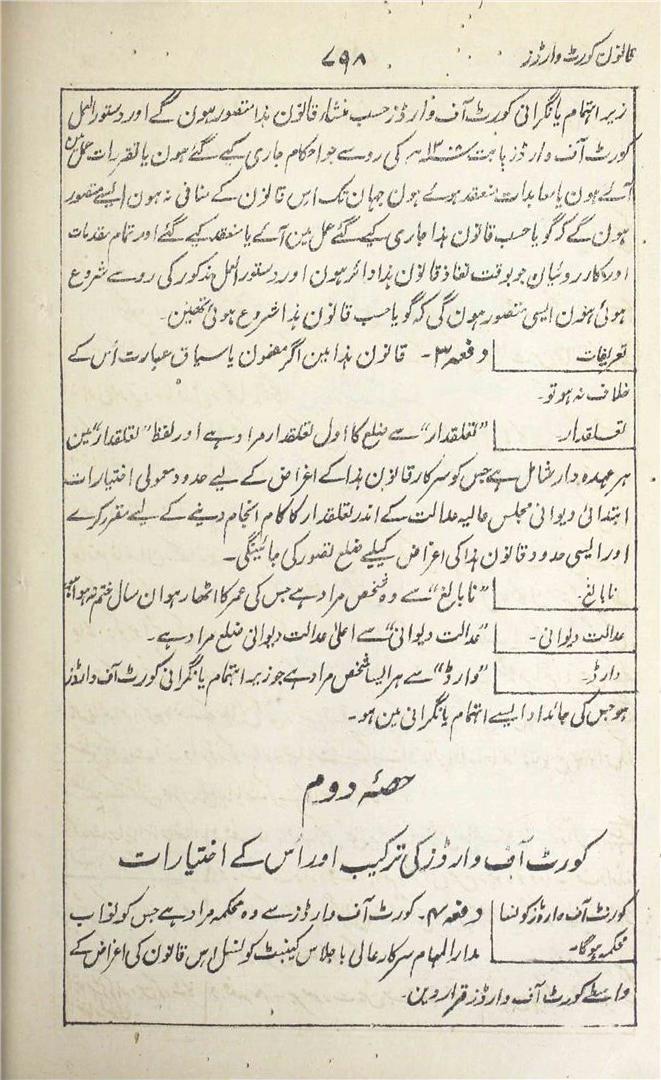 قانون کورٹ وارڈز
۷۹۸
زیر اہتمام یا نگرانی کورٹ آف وارڈز حسب منشاء قانون ہذا متصور ہون گے اور دستور العمل
کورٹ آف وارڈز بابت ۱۳۰۸ ھ کی رو سے جو احکام جاری کیے گئے ہون یا تقررات عمل مین
آئے ہون یا معاہدات منعقد ہوئے ہون جہان تک اس قانون کے منافی نہ ہون ایسے متصور
ہون گے کہ گویا حسب قانون ہذا جاری کیے گئے عمل مین آئے یا منعقد کیے گئے اور تمام مقدمات
اور کارروئیان جو بوقت نفاذ قانون ہذا دائر ہون اور دستور العمل مذکور کی رو سے شروع
ہوئی ہون ایسی متصور ہون گی کہ گویا حسب قانون ہذا شروع ہوئی تھین۔
تعریفات
دفعہ ۳۔ قانون ہذا مین اگر مضمون یا سیاق عبارت اُس کے
خلاف نہ ہو تو۔
تعلقدار۔
”تعلقدار“ سے ضلع کا اول تعلقدار مراد ہے اور لفظ ”تعلقدار“ مین
ہر عہدہ دار شامل ہے جس کو سرکار قانون ہذا کے اغراض کے لیے حدود معمولی اختیارات
ابتدائی دیوانی مجلس عالیہ عدالت کے اندر تعلقدار کا کام انجام دینے کے لیے مقرر کرے
اور ایسی حدود قانون ہذا کی اغراض کیلئے ضلع تصور کی جائینگی۔
نابالغ۔
”نابالغ“ سے وہ شخص مراد ہے جس کی عمر کا اٹھارہوان سال ختم نہ ہوا ہو
عدالت دیوانی۔
”عدالت دیوانی“ سے اعلیٰ عدالت دیوانی ضلع مراد ہے۔
وارڈ۔
”وارڈ“ سے ہر ایسا شخص مراد ہے جو زیر اہتمام یا نگرانی کورٹ آف وارڈز
ہو جس کی جائداد ایسے اہتمام یا نگرانی مین ہو۔
حصّہ دوم
کورٹ آف وارڈز کی ترکیب اور اُس کے اختیارات
کورٹ آف وارڈز کونسا
محکمہ ہوگا۔
دفعہ ۴۔ کورٹ آف وارڈز سے وہ محکمہ مراد ہے جس کو نواب
مدار المہام سرکار عالی باجلاس کیبنٹ کونسل اس قانون کی اغراض کے
واسطے کورٹ آف وارڈز قرار دین۔